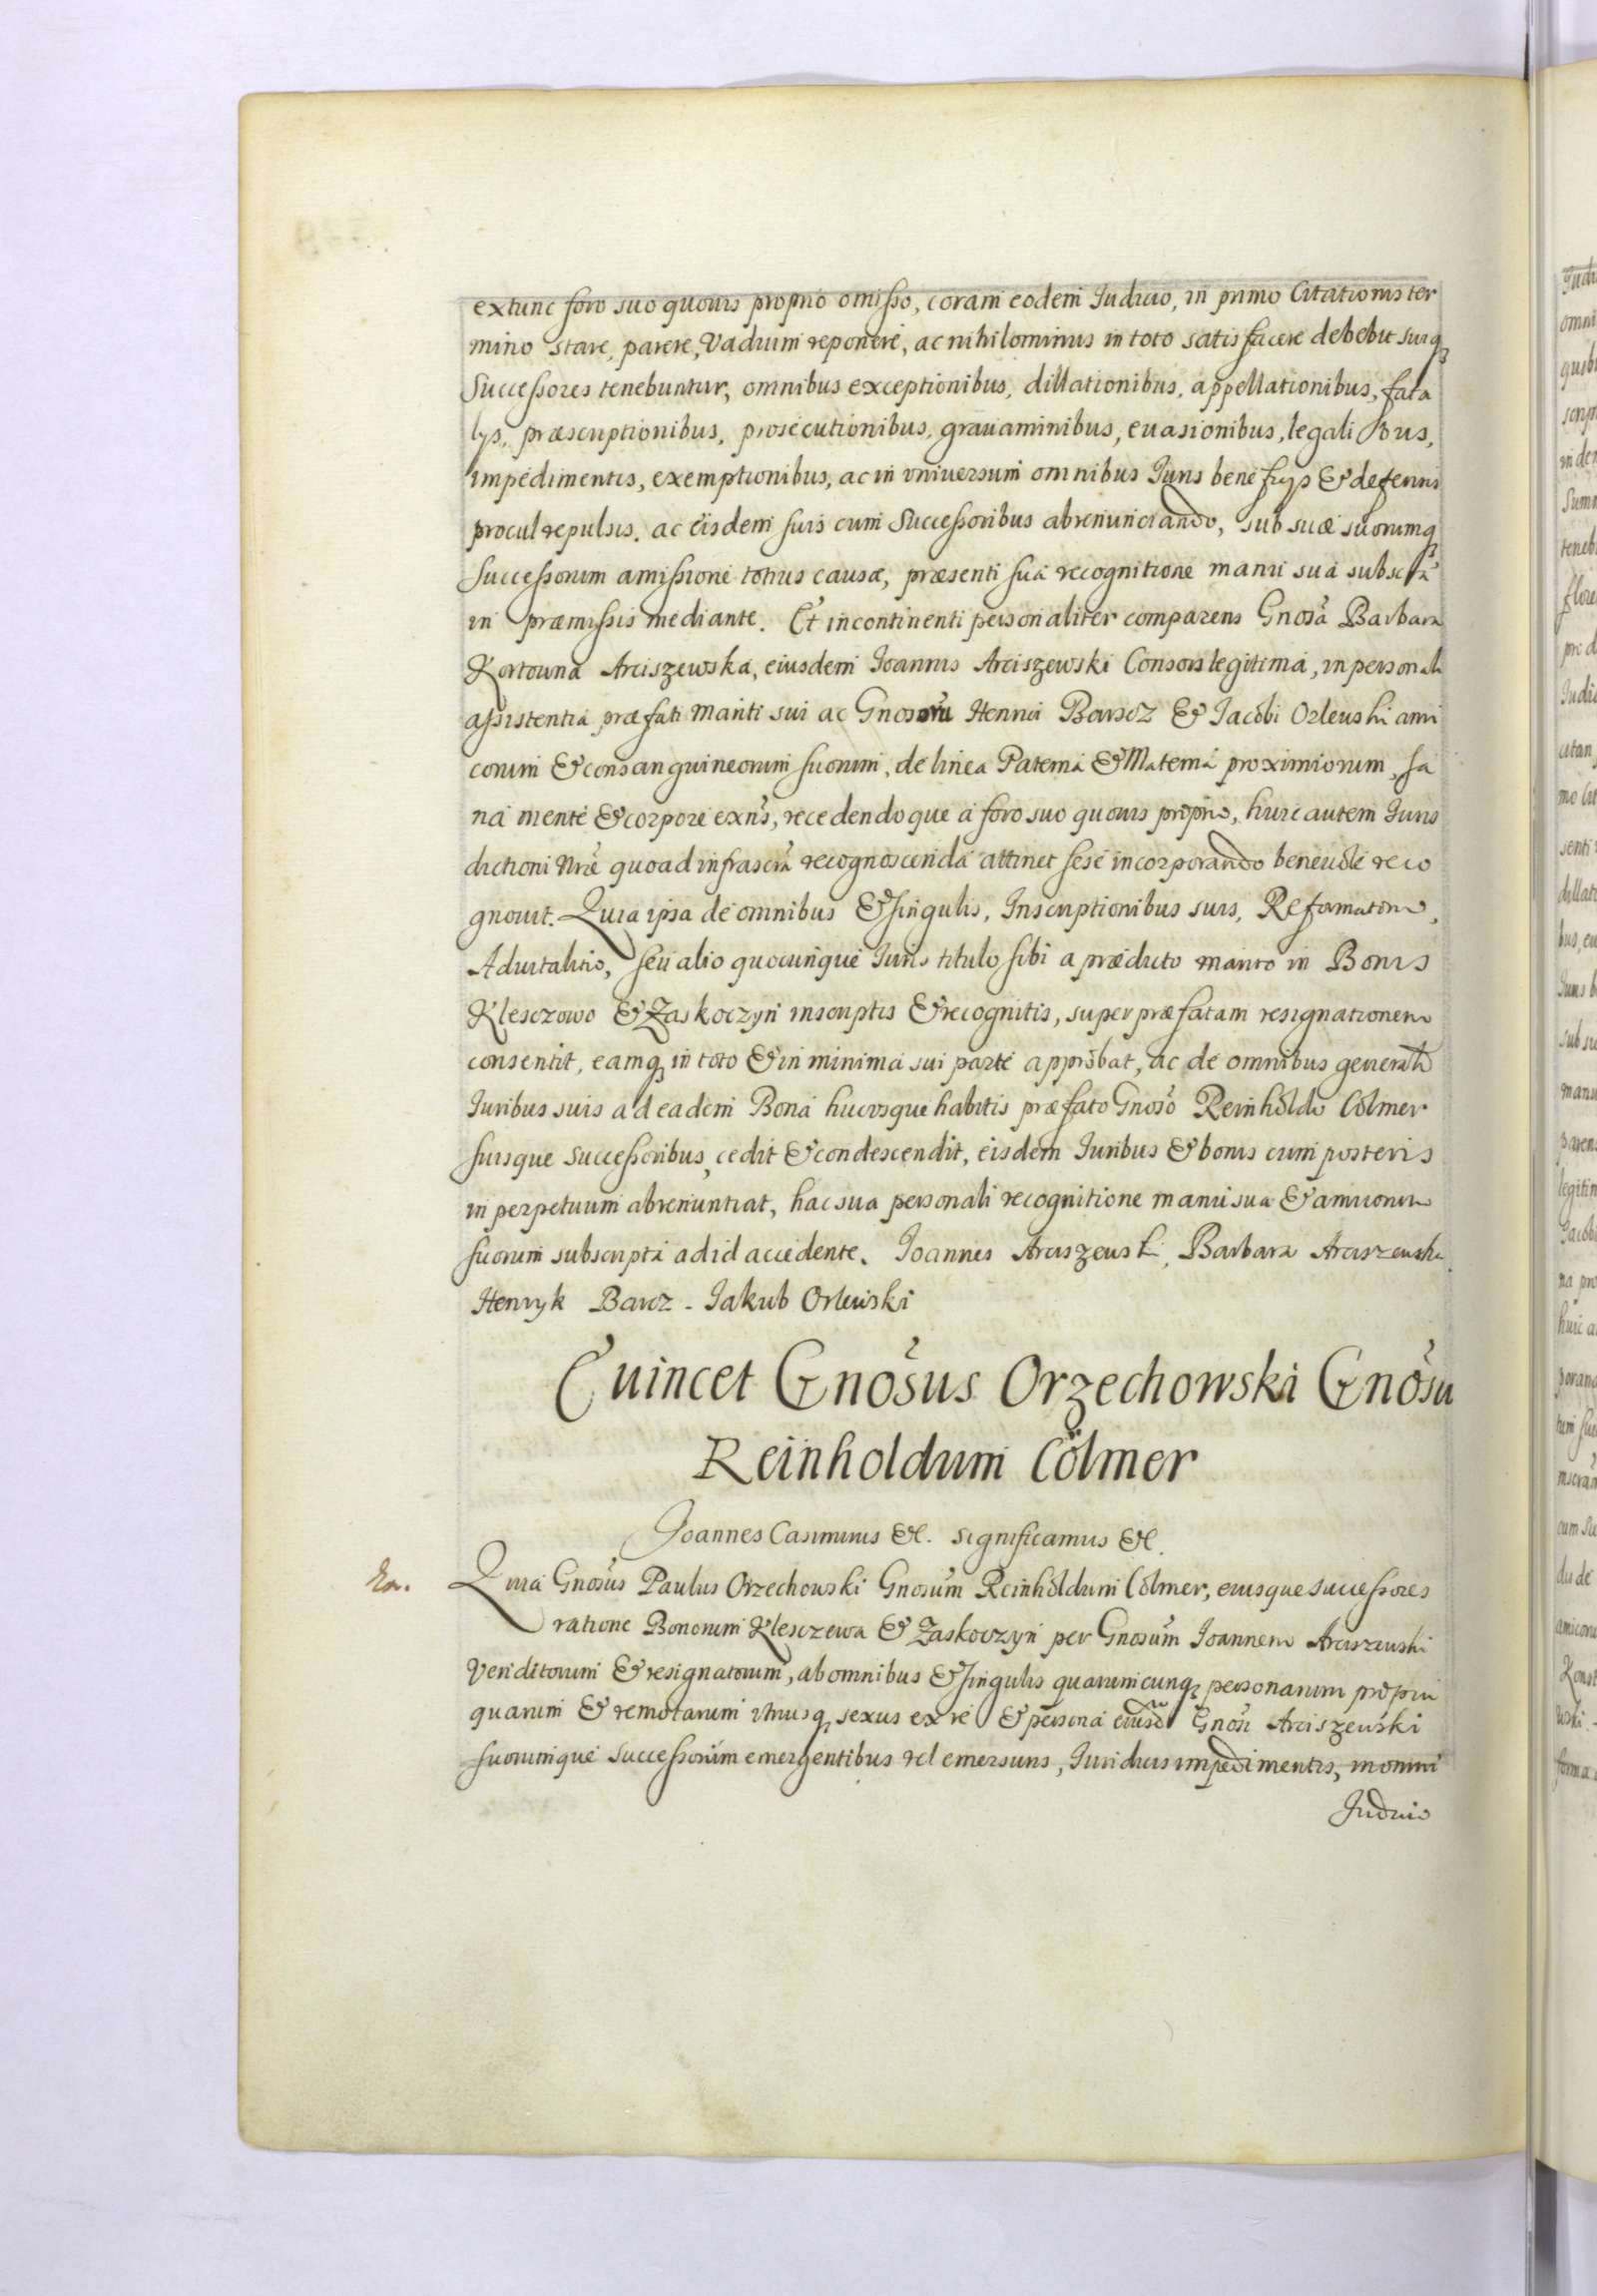 extunc foro suo quouis proprio omisso, coram eodem Iudicio, in primo Citationis ter
mino stare, parere, Vadium reponere, ac nihilominus in toto satisfacere debebit suiq
Successores tenebuntur, omnibus exceptionibus, dillationibus, appellationibus, fata
lys, præscriptionibus, prosecutionibus, grauaminibus, euasionibus, legalibus,
impedimentis, exemptionibus, ac in vniversum omnibus Iuris benefitys & defensis
procul repulsis. ac eisdem suis cum Successoribus abrenunciando, sub suæ suorumq
Successorum amissione totius causæ, præsenti sua recognitione manu sua subscrã
in præmissis mediante. Et incontinenti personaliter comparens Gnosã Barbara
Kortowna Arciszewska, eiusdem Joannis Arciszewski Consors legitima, in personali
assistentia præfati Mariti sui ac Gnosorũ Henrici Barcz & Iacobi Orleuski ami
corum & consanguineorum suorum, de linea Paterna & Materna proximiorum, sa
na mente & corpore exñs, recedendoque a foro suo quouis proprio, huic autem Iuris
dictioni Nræ quoad infrascrã recognoscenda attinet sese incorporando beneuole reco
gnouit. Quia ipsa de omnibus & singulis, Inscriptionibus suis, Reformatione,
Aduitalitio, seu alio quocunque Iuris titulo sibi a prædicto marito in Bonis
Klesczowo & Zaskoczyn inscriptis & recognitis, super præfatam resignationem
consentit, eamq in toto & in minima sui parte approbat, ac de omnibus generalr
Iuribus suis ad eadem Bona hucvsque habitis præfato Gnosõ Reinholdo Cölmer
suisque Successoribus cedit & condescendit, eisdem Iuribus & bonis cum posteris
in perpetuum abrenuntiat, hac sua personali recognitione manu sua & amicorum
suorum subscripta ad id accedente. Joannes Arciszewski, Barbara Arciszewska
Henryk Barcz - Jakub Orleuski
Euincet Gnosus Orzechowski Gnosũ
Reinholdum Cölmer
Joannes Casimirus &c. Significamus &c.
Quia Gnosus Paulus Orzechowski Gnosum Reinholdum Cölmer, eiusque successores
ratione Bonorum Klesczewa & Zaskoczyn per Gnosum Joannem Arciszewski
Venditorum & resignatorum, ab omnibus & singulis quarumcunq personarum propin
quarum & remotarum vtriusq sexus ex re & persona eiusd Gnosi Arciszewski
suorumque successorum emergentibus vel emersuris, Iuridicis impedimentis, in omni
Iudicio